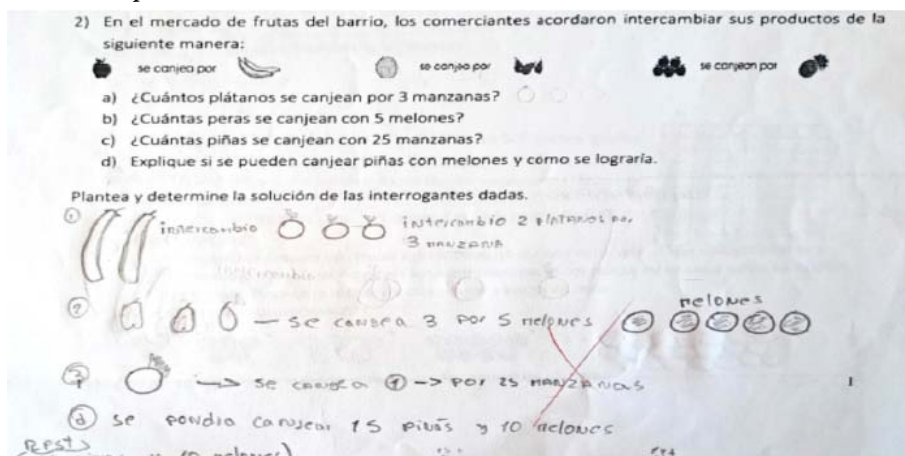 2) En el mercado de frutas del barrio, los comerciantes acordaron intercambiar sus productos de la
siguiente manera:
se canjea por se canjea por se canjean por
a) ¿Cuántos plátanos se canjean por 3 manzanas?
b) ¿Cuántas peras se canjean con 5 melones?
c) ¿Cuántas piñas se canjean con 25 manzanas?
d) Explique si se pueden canjear piñas con melones y como se lograría.
Plantea y determine la solución de las interrogantes dadas.
① intercambio intercambio 2 PLATANOS por
3 MANZANA
intercambio
② — se canjea 3 por 5 melones melones
→ se canjea ① → por 25 MANZANAS
ⓓ se 15 piñas y 10 melones
10 melones)